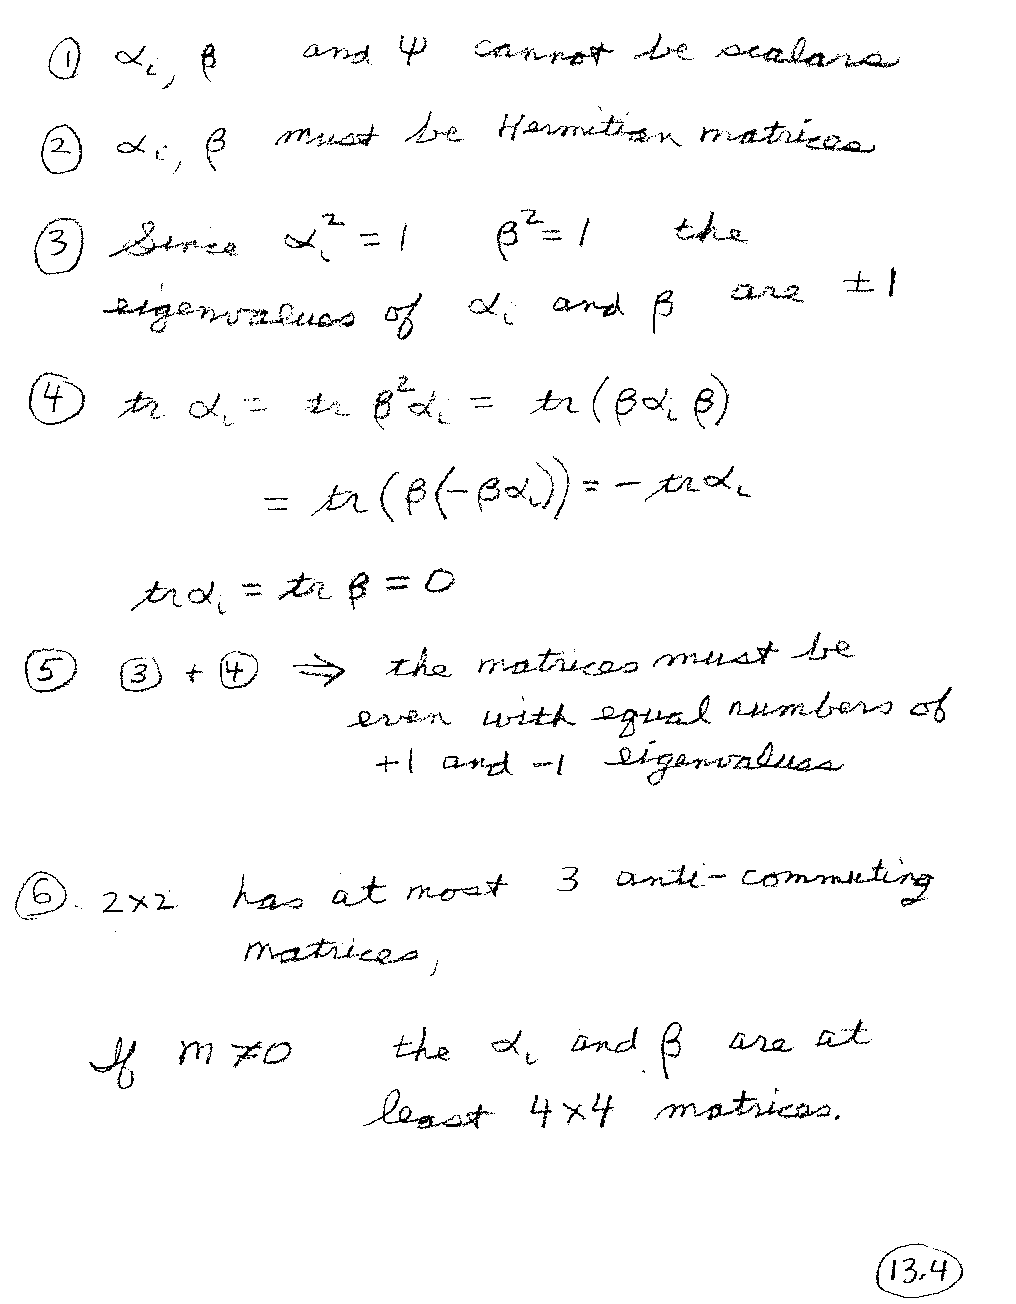 ① αᵢ, β and ψ cannot be scalars
② αᵢ, β must be Hermitian matrices
③ Since αᵢ² = 1 β² = 1 the
eigenvalues of αᵢ and β are ±1
④ tr αᵢ = tr β²αᵢ = tr(βαᵢβ)
= tr(β(-βαᵢ)) = - tr αᵢ
tr αᵢ = tr β = 0
⑤ ③ + ④ ⇒ the matrices must be
even with equal numbers of
+1 and -1 eigenvalues
⑥. 2×2 has at most 3 anti-commuting
matrices,
If m ≠ 0 the αᵢ and β are at
least 4×4 matrices.
13.4